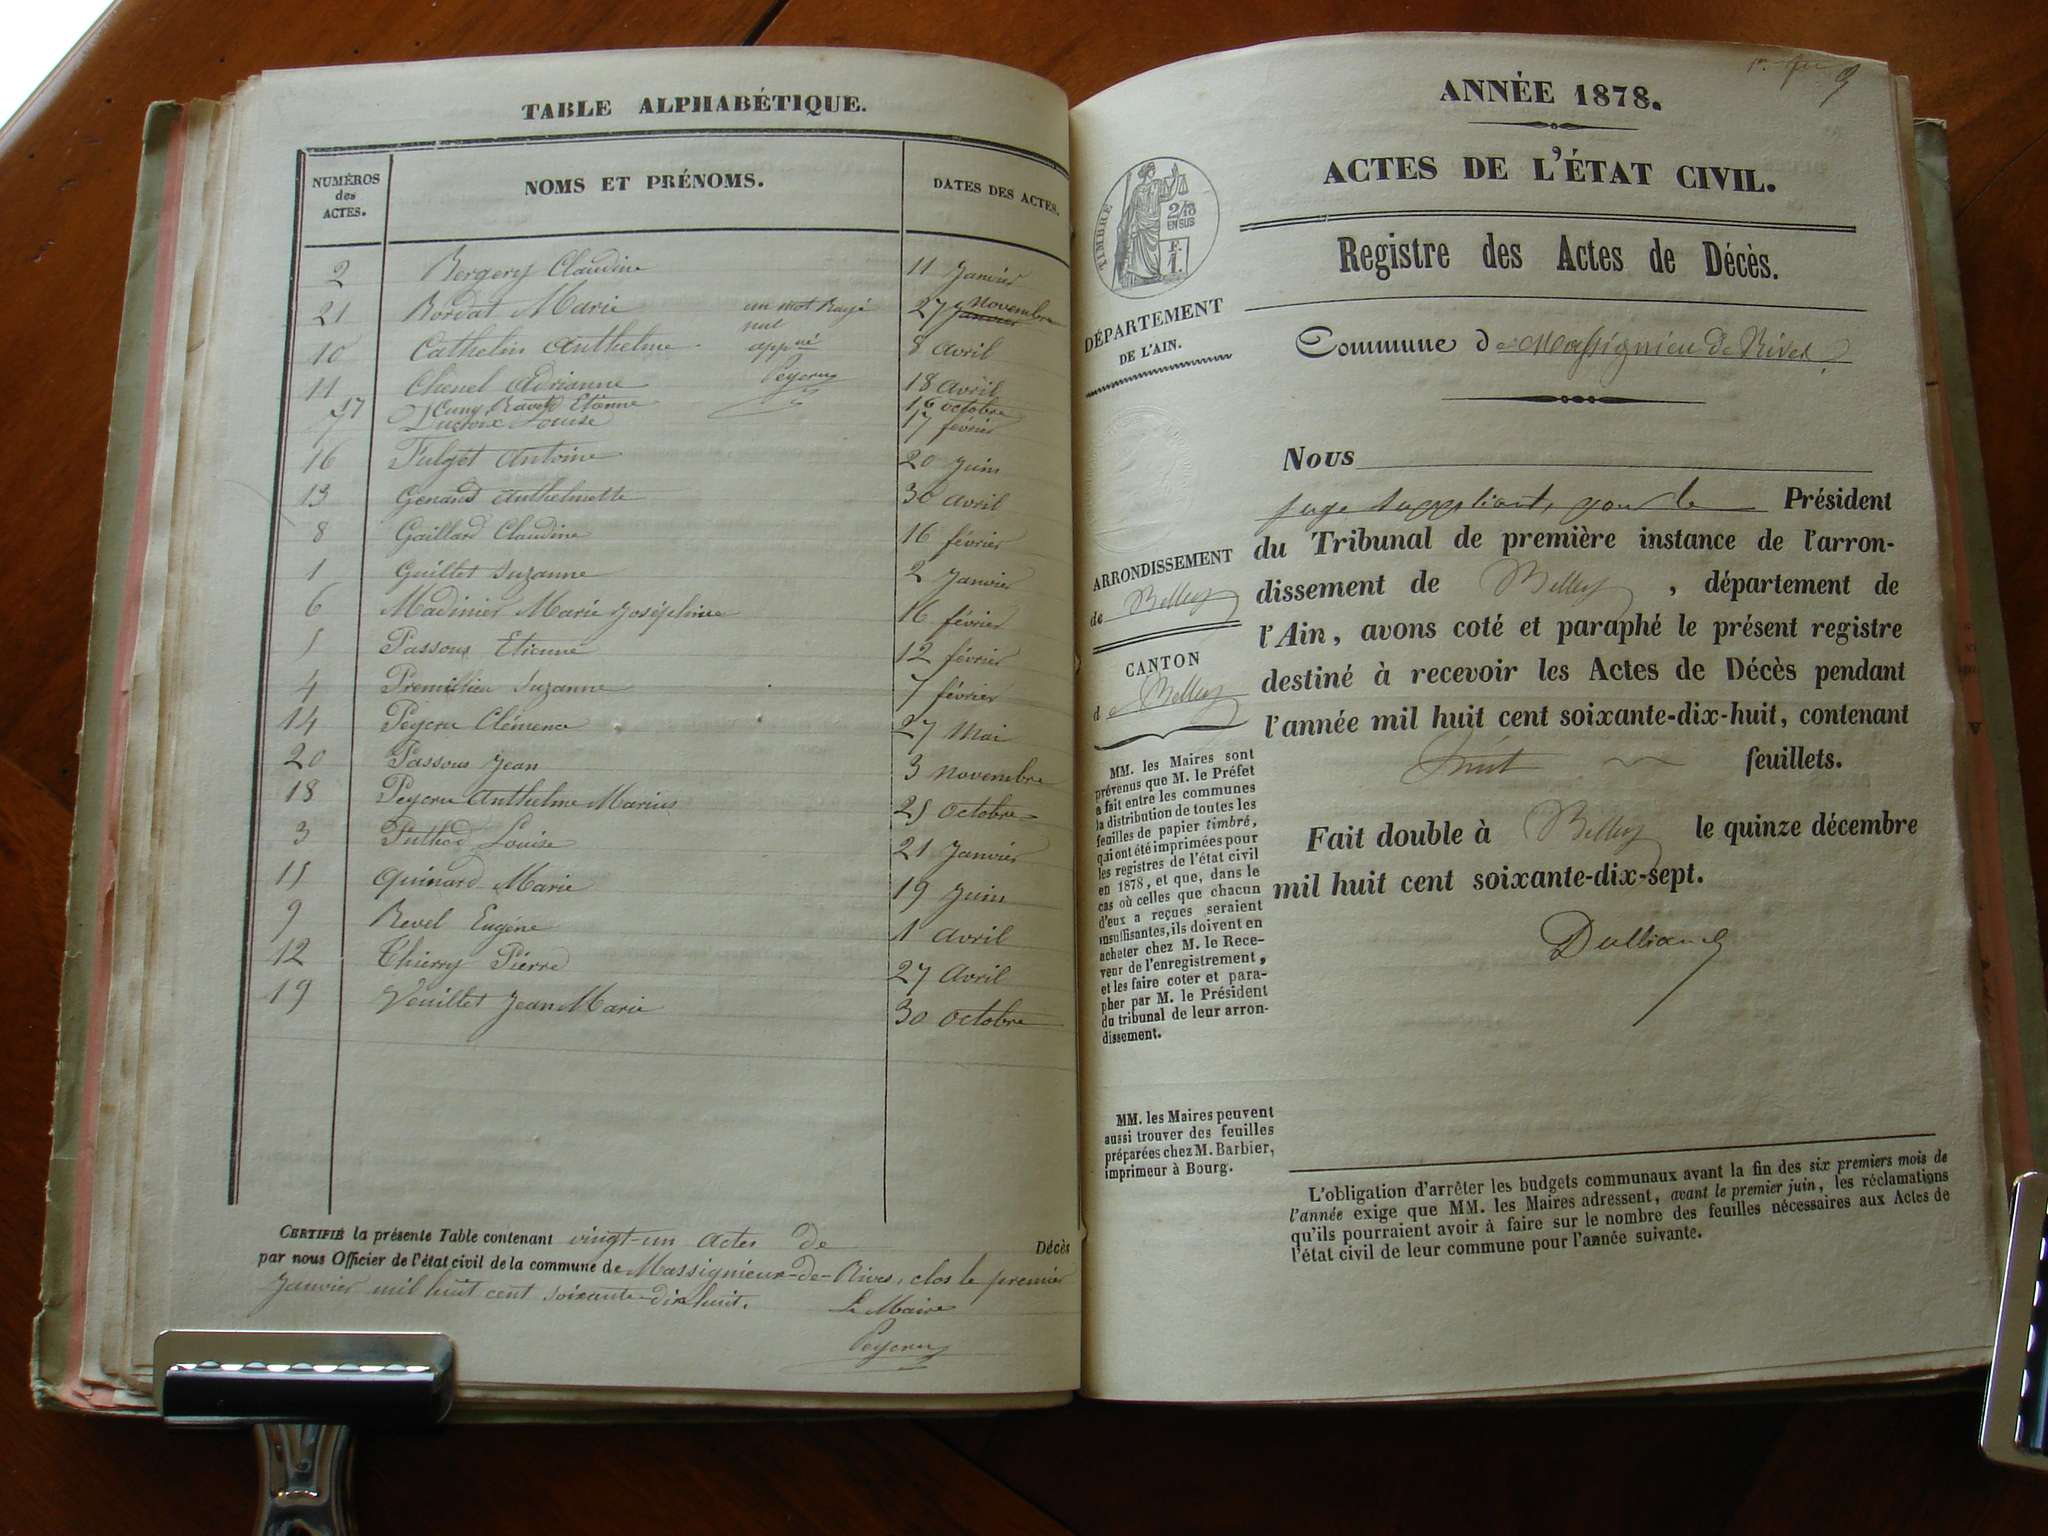 TABLE ALPHABÉTIQUE.
NUMÉROS des ACTES.
NOMS ET PRÉNOMS.
DATES DES ACTES.
2 Bergery Claudine 11 Janvier
21 Bordat Marie un mot Rayé 27 Janvier novembre
nul
10 Cathelin Anthelme appné 8 Avril
11 Chenel Adrianne Peycru 18 Avril
17 Cuny Ravet Etienne 16 octobre
7 Ducroix Louise 17 février
16 Fulget Antoine 20 Juin
13 Genand Anthelmette 30 Avril
8 Gaillard Claudine 16 février
1 Guillet Suzanne 2 Janvier
6 Madinier Marie Joséphine 16 février
5 Passous Etienne 12 février
4 Premillieu Suzanne 7 février
14 Peycru Clémence 27 Mai
20 Passous Jean 3 Novembre
18 Peycru Anthelme Marius 25 Octobre
3 Puthod Louise 21 Janvier
15 Quinard Marie 19 Juin
9 Revel Eugène 1 Avril
12 Thierry Pierre 27 Avril
19 Veuillet Jean Marie 30 Octobre
CERTIFIÉ la présente Table contenant vingt-un actes de Décès
par nous Officier de l'état civil de la commune de Massignieu-de-Rives, clos le premier
Janvier mil huit cent soixante-dix huit. Le Maire
Peycru
ANNÉE 1878.
ACTES DE L'ÉTAT CIVIL.
Registre des Actes de Décès.
TIMBRE
2/10
EN SUS
DÉPARTEMENT
DE L'AIN.
Commune de Massignieu de Rives
Nous
juge suppléant, pour le Président
du Tribunal de première instance de l'arron-
dissement de Belley, département de
l'Ain, avons coté et paraphé le présent registre
destiné à recevoir les Actes de Décès pendant
l'année mil huit cent soixante-dix-huit, contenant
huit feuillets.
Fait double à Belley le quinze décembre
mil huit cent soixante-dix-sept.
ARRONDISSEMENT
de Belley
CANTON
de Belley
MM. les Maires sont
prévenus que M. le Préfet
a fait entre les communes
la distribution de toutes les
feuilles de papier timbré,
qui ont été imprimées pour
les registres de l'état civil
en 1878, et que, dans le
cas où celles que chacun
d'eux a reçues seraient
insuffisantes, ils doivent en
acheter chez M. le Rece-
veur de l'enregistrement,
et les faire coter et para-
pher par M. le Président
du tribunal de leur arron-
dissement.
MM. les Maires peuvent
aussi trouver des feuilles
préparées chez M. Barbier,
imprimeur à Bourg.
L'obligation d'arrêter les budgets communaux avant la fin des six premiers mois de
l'année exige que MM. les Maires adressent, avant le premier juin, les réclamations
qu'ils pourraient avoir à faire sur le nombre des feuilles nécessaires aux Actes de
l'état civil de leur commune pour l'année suivante.